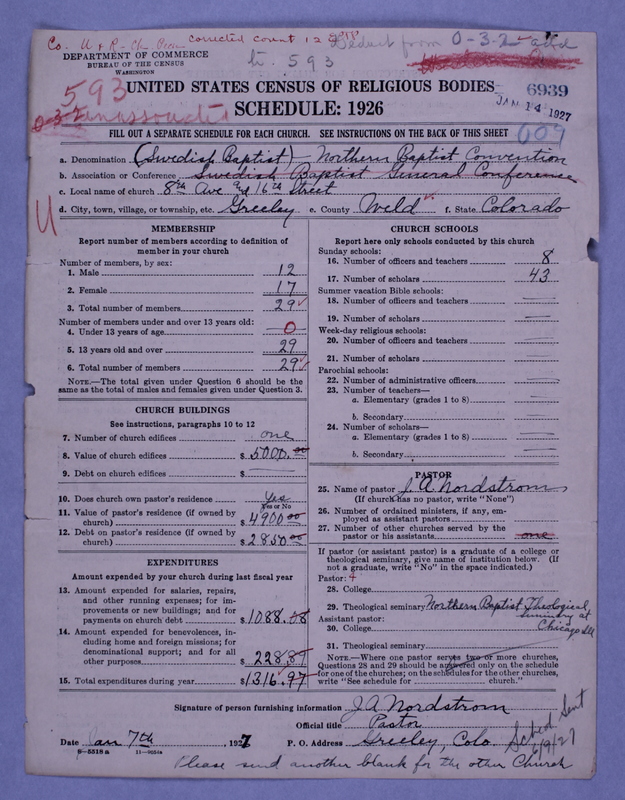 Co. U & R - Ch. Corrected count 12 Deduct from 0-3-2 add
DEPARTMENT OF COMMERCE
BUREAU OF THE CENSUS
WASHINGTON
tr. 593
593
0-3-2
UNITED STATES CENSUS OF RELIGIOUS BODIES
6939
SCHEDULE: 1926
JAN 14 1927
009
FILL OUT A SEPARATE SCHEDULE FOR EACH CHURCH. SEE INSTRUCTIONS ON THE BACK OF THIS SHEET
a. Denomination (Swedish Baptist) Northern Baptist Convention
b. Association or Conference Swedish Baptist General Conference
c. Local name of church 8th Ave and 16th Street
d. City, town, village, or township, etc. Greeley e. County Weld f. State Colorado
U
MEMBERSHIP
Report number of members according to definition of
member in your church
Number of members, by sex:
1. Male 12
2. Female 17
3. Total number of members 29
Number of members under and over 13 years old:
4. Under 13 years of age 0
5. 13 years old and over 29
6. Total number of members 29
NOTE.—The total given under Question 6 should be the
same as the total of males and females given under Question 3.
CHURCH BUILDINGS
See instructions, paragraphs 10 to 12
7. Number of church edifices one
8. Value of church edifices $ 5000.00
9. Debt on church edifices $
10. Does church own pastor's residence Yes
Yes or No
11. Value of pastor's residence (if owned by
church) $ 4900 00
12. Debt on pastor's residence (if owned by
church) $ 2850 00
EXPENDITURES
Amount expended by your church during last fiscal year
13. Amount expended for salaries, repairs,
and other running expenses; for im-
provements or new buildings; and for
payments on church debt $ 1088.08
14. Amount expended for benevolences, in-
cluding home and foreign missions; for
denominational support; and for all
other purposes $ 228.89
15. Total expenditures during year $ 1316.97
CHURCH SCHOOLS
Report here only schools conducted by this church
Sunday schools:
16. Number of officers and teachers 8
17. Number of scholars 43
Summer vacation Bible schools:
18. Number of officers and teachers
19. Number of scholars
Week-day religious schools:
20. Number of officers and teachers
21. Number of scholars
Parochial schools:
22. Number of administrative officers
23. Number of teachers—
a. Elementary (grades 1 to 8)
b. Secondary
24. Number of scholars—
a. Elementary (grades 1 to 8)
b. Secondary
PASTOR
25. Name of pastor J. A. Nordstrom
(If church has no pastor, write "None")
26. Number of ordained ministers, if any, em-
ployed as assistant pastors
27. Number of other churches served by the
pastor or his assistants one
If pastor (or assistant pastor) is a graduate of a college or
theological seminary, give name of institution below. (If
not a graduate, write "No" in the space indicated.)
Pastor: 4
28. College
29. Theological seminary Northern Baptist Theological
Seminary at
Assistant pastor:
30. College
Chicago Ill
31. Theological seminary
NOTE.—Where one pastor serves two or more churches,
Questions 28 and 29 should be answered only on the schedule
for one of the churches; on the schedules for the other churches,
write "See schedule for church."
Signature of person furnishing information J. A. Nordstrom
Official title Pastor
Date Jan 7th, 1927 P. O. Address Greeley, Colo.
8—5518 a
Sched Sent
6/9/27
Please send another blank for the other Church